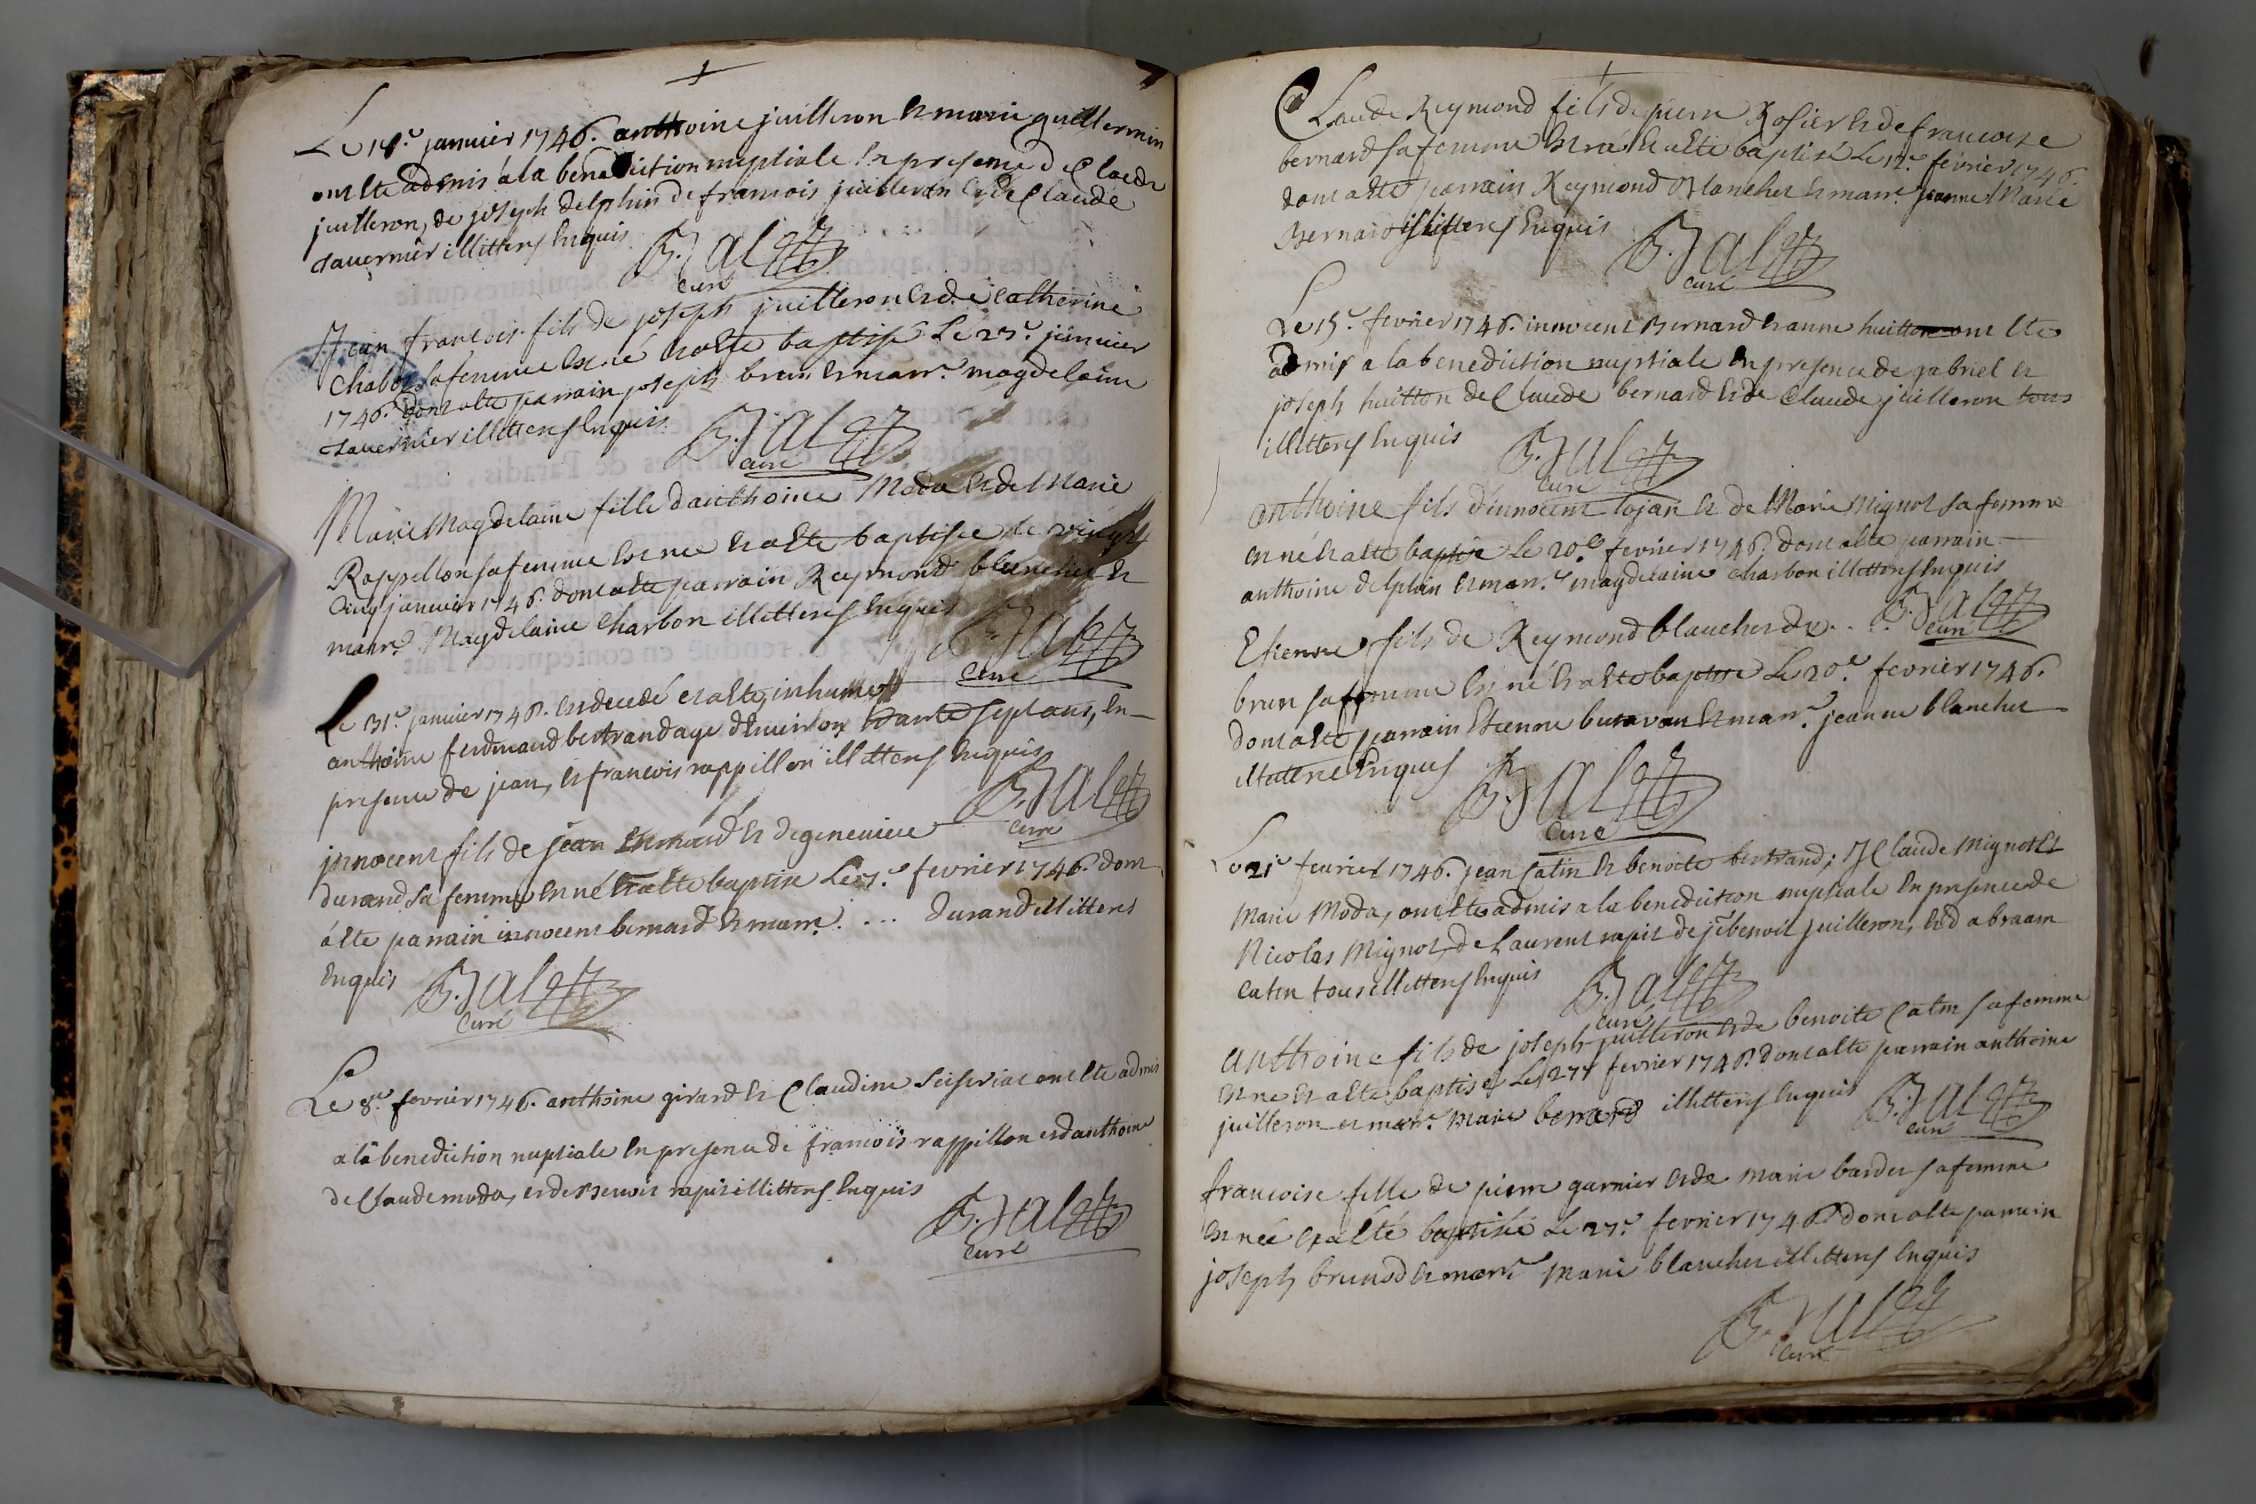 Le 18e janvier 1746. anthoine juilleron et marie guillermin
ont ete admis à la benediction nuptiale en presence de Claude
juilleron, de joseph delphin de francois juilleron et de Claude
tavernier illitterés enquis
B. Jalez
curé
Jean francois fils de joseph juilleron et de catherine
chabot sa femme est né et a ete baptisé Le 23e janvier
1746. dont a ete parrain joseph brun et marr.e magdelaine
tavernier illitterés enquis
B. Jalez
curé
Marie Magdelaine fille d'anthoine Moda et de Marie
Rappillon sa femme est née et a ete baptisée le vingt
cinq janvier 1746. dont a ete parrain Reymond blanchet et
marr.e Magdelaine Charbon illitterés enquis
B. Jalez
curé
Le 31e janvier 1746. est decedé et a ete inhumé
anthoine ferdinand bertrand age d'environ trante sept ans, en
presence de jean, et francois rappillon illitterés enquis
B. Jalez
curé
jnnocent fils de jean et de genevieve
durand sa femme est né et a ete baptisé Le 7.e fevrier 1746. dont
a ete parrain innocent bernard et marr.e . . . . durand illitterés
enquis
B. Jalez
curé
Le 8.e fevrier 1746. anthoine girard et Claudine ont ete admis
a la benediction nuptiale en presence de francois rappillon et d'anthoine
de Claude moda, et de benoit rapit illitterés enquis
B. Jalez
curé
Claude Reymond fils de pierre Rosier et de francoise
bernard sa femme est né et a ete baptisé Le 12.e fevrier 1746.
dont a ete parrain Reymond Blanchet et marr.e jeanne Marie
Bernard illitterés enquis
B. Jalez
curé
Le 15.e fevrier 1746. innocent Bernard et anne huitton ont ete
admis a la benediction nuptiale en presence de gabriel et
joseph huitton de Claude bernard et de Claude juilleron tous
illitterés enquis
B. Jalez
curé
anthoine fils d'innocent lojan et de Marie Mignot sa femme
est né et a ete baptisé Le 20.e fevrier 1746. dont a ete parrain
anthoine delphin et marr.e magdelaine charbon illitterés enquis
B. Jalez
curé
Etienne fils de Reymond blanchet de . . . .
brun sa femme est né et a ete baptisé Le 20.e fevrier 1746.
dont a ete parrain Etienne buttavan et marr.e jeanne blanchet
illiterés enquis
B. Jalez
curé
Le 21e fevrier 1746. jean Catin et benoite bertrand; Claude Mignot et
Marie Moda, ont ete admis a la benediction nuptiale en presence de
Nicolas Mignot, de Laurent rapit de benoit juilleron, et d'abraam
catin tous illitterés enquis
B. Jalez
curé
anthoine fils de joseph juilleron et de benoite Catin sa femme
est né et a ete baptisé Le 27e fevrier 1746. dont a ete parrain anthoine
juilleron et marr.e Marie bernard illitterés enquis
B. Jalez
curé
francoise fille de pierre garnier et de Marie bardet sa femme
est née et a été baptisée Le 27.e fevrier 1746. dont a ete parrain
joseph brunod et marr.e Marie blanchet illitterés enquis
B. Jalez
curé